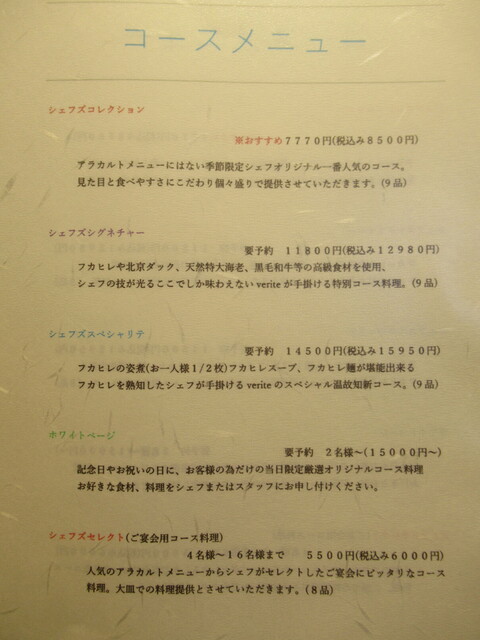 コースメニュー
シェフズコレクション
※おすすめ7770円(税込み8500円)
アラカルトメニューにはない季節限定シェフオリジナル一番人気のコース。
見た目と食べやすさにこだわり個々盛りで提供させていただきます。(9品)
シェフズシグネチャー
要予約 11800円(税込み12980円)
フカヒレや北京ダック、天然特大海老、黒毛和牛等の高級食材を使用、
シェフの技が光るここでしか味わえないveriteが手掛ける特別コース料理。(9品)
シェフズスペシャリテ
要予約 14500円(税込み15950円)
フカヒレの姿煮(お一人様1/2枚)フカヒレスープ、フカヒレ麺が堪能出来る
フカヒレを熟知したシェフが手掛けるveriteのスペシャル温故知新コース。(9品)
ホワイトページ
要予約 2名様〜(15000円〜)
記念日やお祝いの日に、お客様の為だけの当日限定厳選オリジナルコース料理
お好きな食材、料理をシェフまたはスタッフにお申し付けください。
シェフズセレクト(ご宴会用コース料理)
4名様〜16名様まで 5500円(税込み6000円)
人気のアラカルトメニューからシェフがセレクトしたご宴会にピッタリなコース
料理。大皿での料理提供とさせていただきます。(8品)